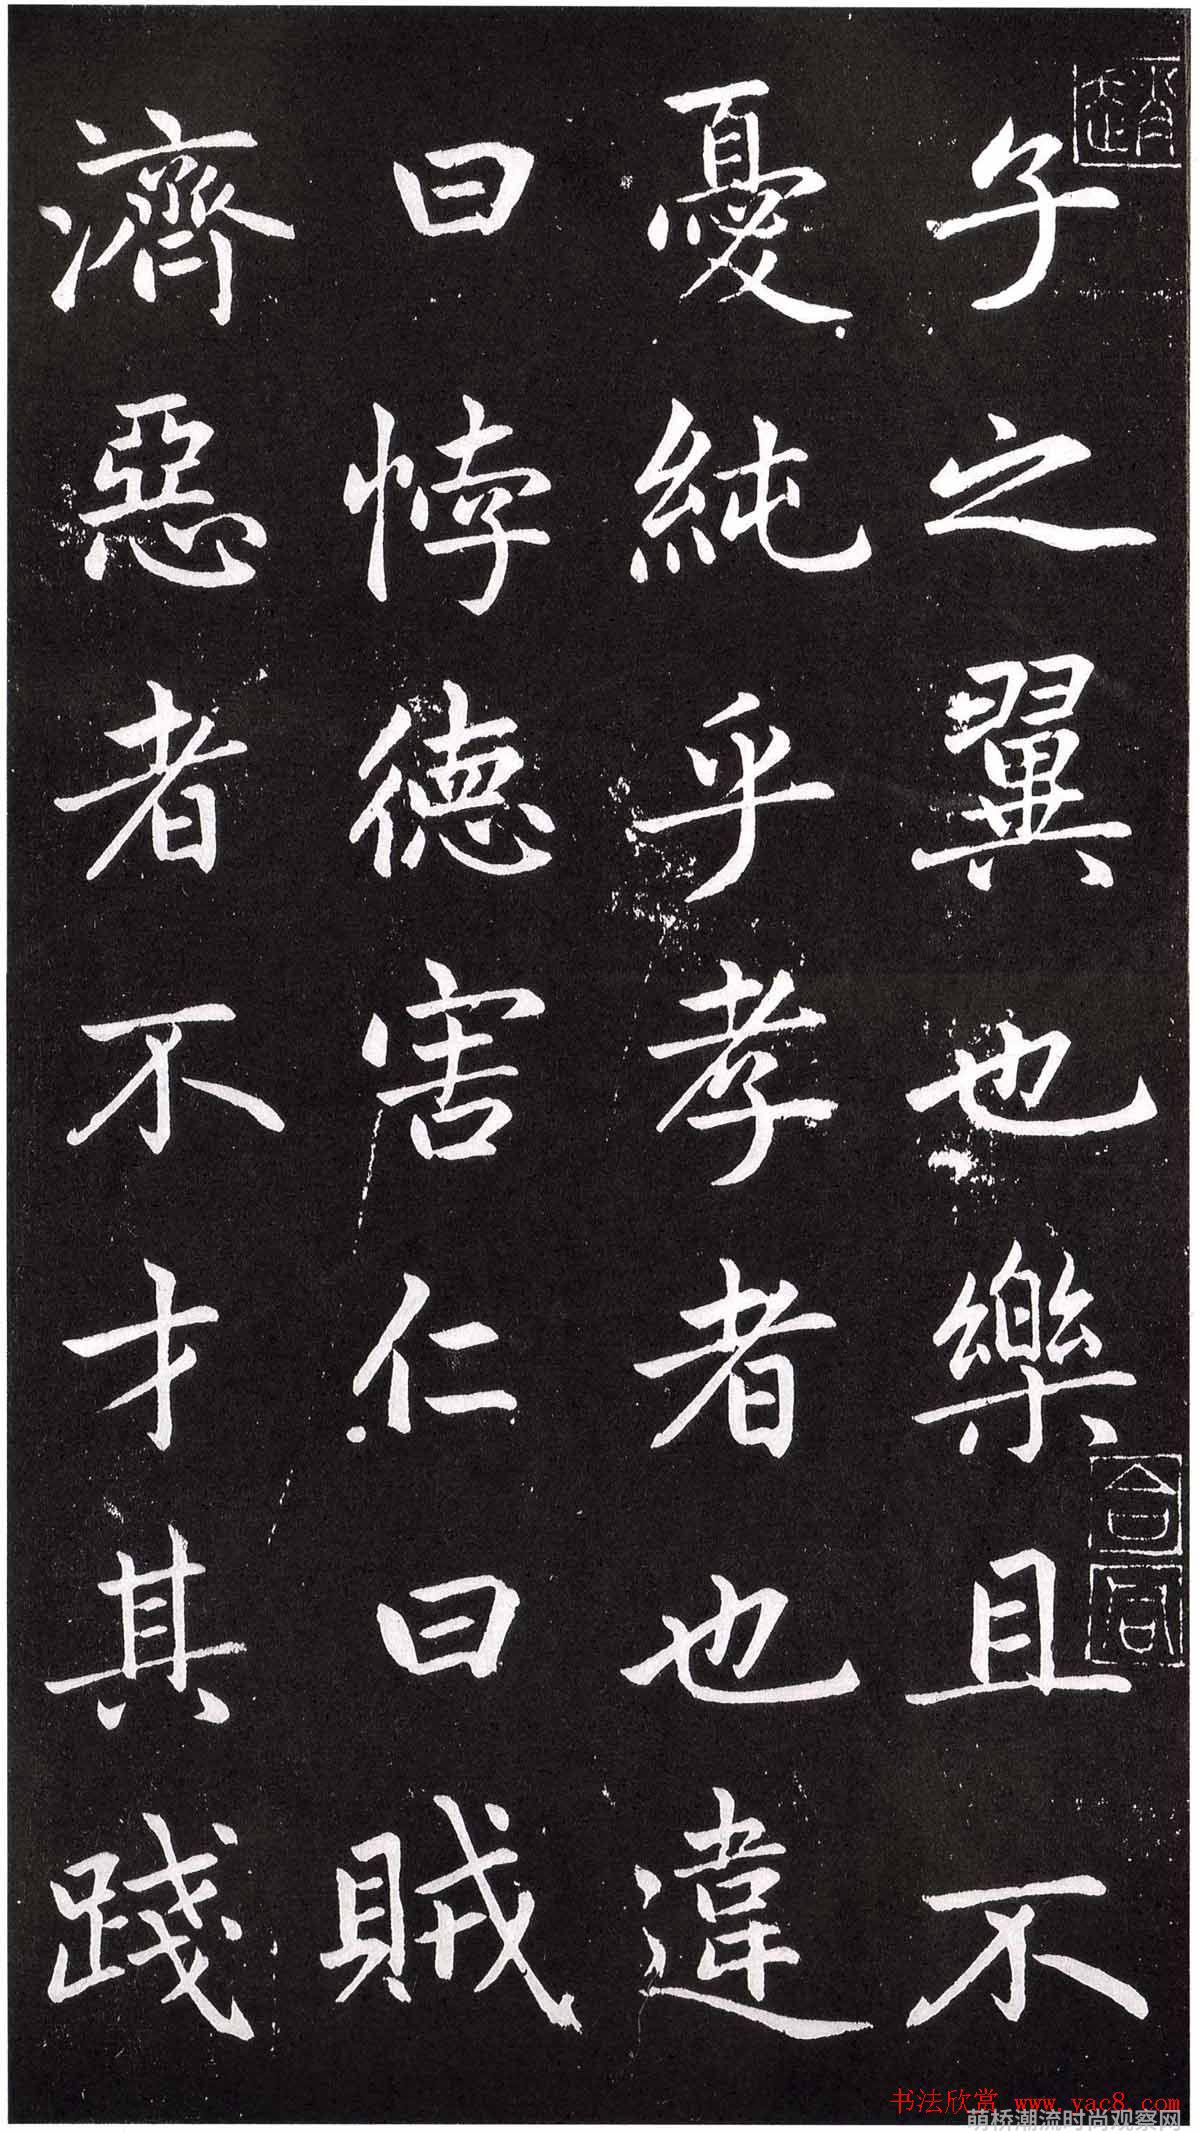 子之翼也樂且不
憂純乎孝者也違
曰悖德害仁曰賊
濟惡者不才其踐
合同
书法欣赏 www.yac8.com
萌桥潮流时尚观察网